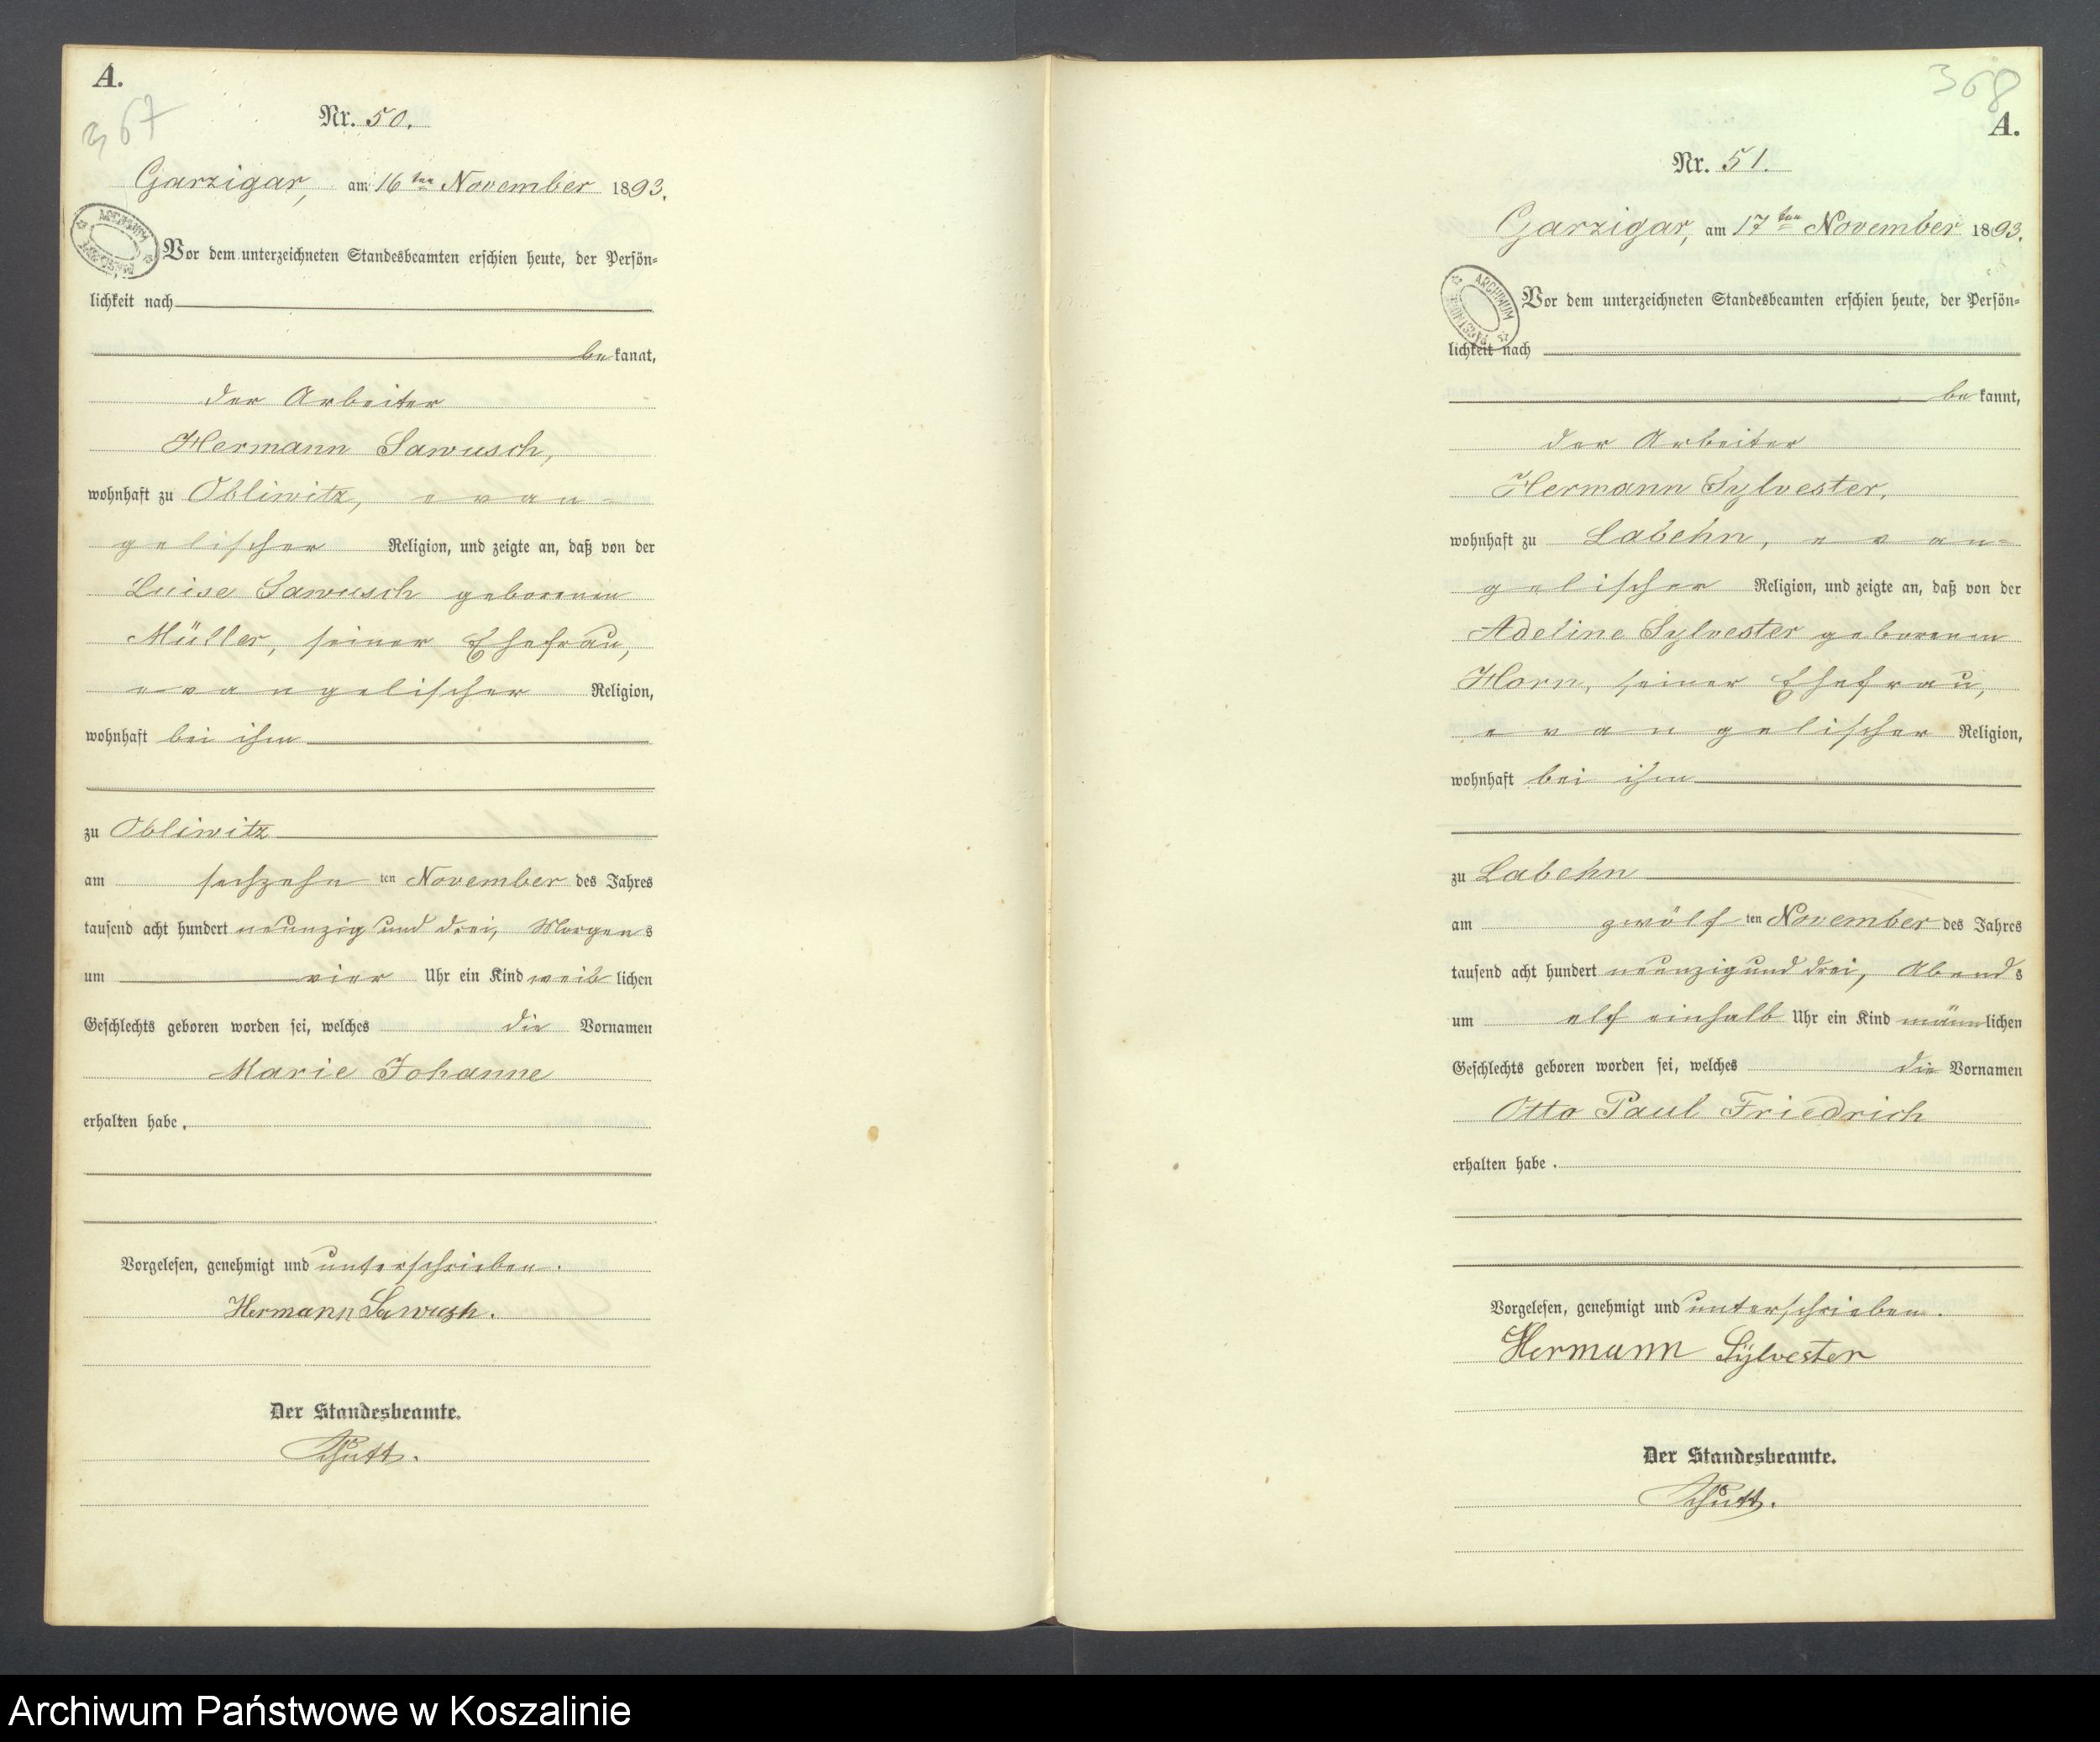 A.
367
Nr. 50.
Garzigar, am 16ten November 1893.
ARCHIWUM
Vor dem unterzeichneten Standesbeamten erschien heute, der Persön-
lichkeit nach
be kannt,
der Arbeiter
Hermann Sawusch,
wohnhaft zu Obliwitz, evan-
gelischer Religion, und zeigte an, daß von der
Luise Sawusch geborenen
Müller, seiner Ehefrau,
evangelischer Religion,
wohnhaft bei ihm
zu Obliwitz
am sechzehn ten November des Jahres
tausend acht hundert neunzig und drei, Morgens
um vier Uhr ein Kind weib lichen
Geschlechts geboren worden sei, welches die Vornamen
Marie Johanne
erhalten habe.
Vorgelesen, genehmigt und unterschrieben.
Hermann Sawusch.
Der Standesbeamte.
368
A.
Nr. 51.
Garzigar, am 17ten November 1893.
ARCHIWUM
Vor dem unterzeichneten Standesbeamten erschien heute, der Persön-
lichkeit nach
be kannt,
der Arbeiter
Hermann Sylvester,
wohnhaft zu Labehn, evan-
gelischer Religion, und zeigte an, daß von der
Adeline Sylvester geborenen
Horn, seiner Ehefrau,
evangelischer Religion,
wohnhaft bei ihm
zu Labehn
am zwölf ten November des Jahres
tausend acht hundert neunzig und drei, Abends
um elf einhalb Uhr ein Kind männlichen
Geschlechts geboren worden sei, welches die Vornamen
Otto Paul Friedrich
erhalten habe.
Vorgelesen, genehmigt und unterschrieben.
Hermann Sylvester
Der Standesbeamte.
Archiwum Państwowe w Koszalinie